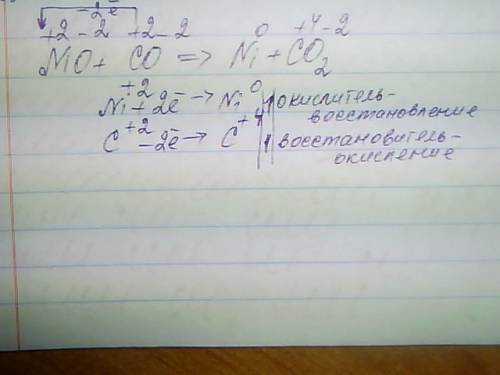 -2ē
+2 -2 +2 -2 0 +4 -2
NiO + CO => Ni + CO₂
Ni⁺² + 2ē → Ni⁰ | 1 | окислитель-
восстановление
C⁺² - 2ē → C⁺⁴ | 1 | восстановитель-
окисление